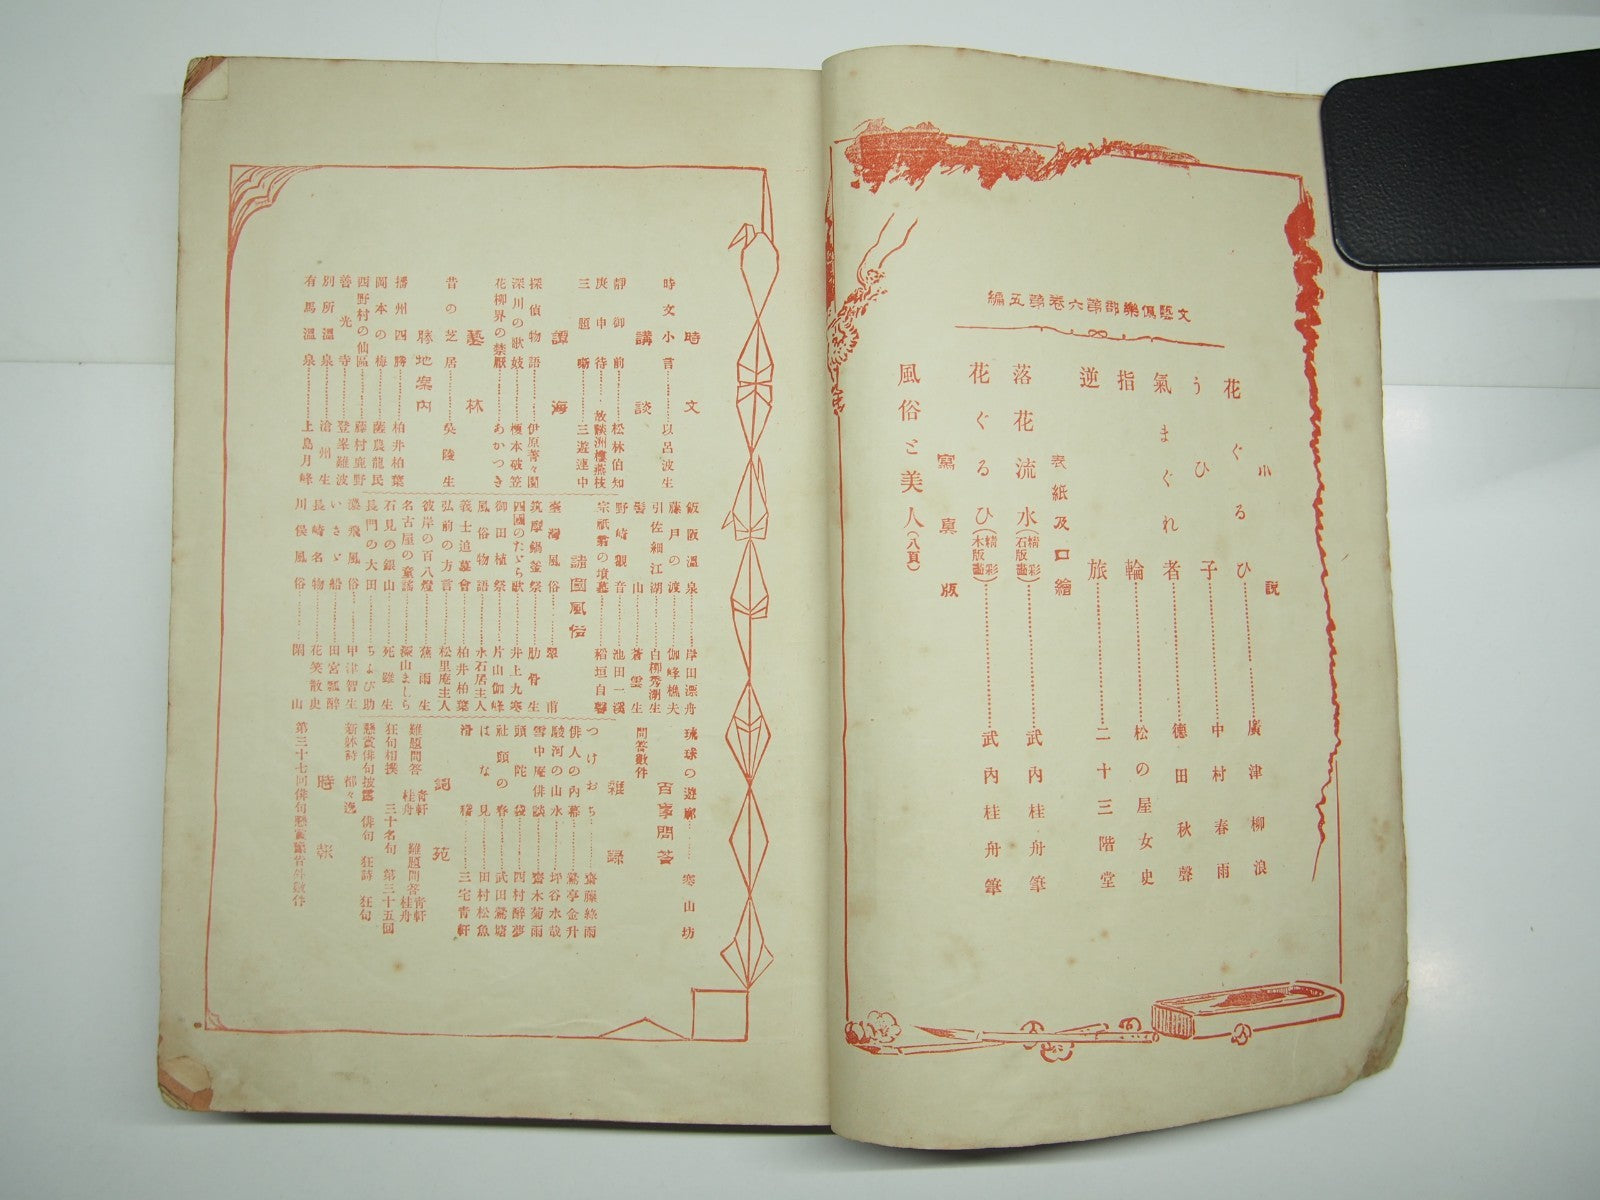 文藝倶樂部第六卷第五編
小説
花ぐるひ………廣津柳浪
うひ子………中村春雨
氣まぐれ者………德田秋聲
指輪………松の屋女史
逆旅………二十三階堂
表紙及口繪
落花流水(精彩石版畫)………武內桂舟筆
花ぐるひ(精彩木版畫)………武內桂舟筆
寫眞版
風俗と美人(八頁)
時文
時文小言………以呂波生
講談
靜御前………松林伯知
庚申待………故談洲樓燕枝
三題噺………三遊連中
譚海
探偵物語………伊原靑々園
深川の歌妓………榎本破笠
花柳界の禁厭………あかつき
藝林
昔の芝居………吳陵生
勝地案內
播州四勝………柏井柏葉
岡本の梅………薩農龍民
西野村の仙區………藤村鹿野
善光寺………登峯難波
別所溫泉………滄州生
有馬溫泉………上島月峰
飯阪溫泉………岸田漂舟
藤月の渡………伽峰樵夫
引佐細江湖………白柳秀湖生
髻山………蒼雲生
野崎觀音………池田一溪
宗祇翁の墳墓………稻垣自馨
諸國風俗
臺灣風俗………翠甫
筑摩鍋釜祭………肋骨生
四國のたゝら歌………井上九寒
御田植祭………片山伽峰
風俗物語………永石居主人
義士追慕會………柏井柏葉
弘前の方言………松里庵主人
彼岸の百八燈………蕉雨生
名古屋の童謠………深山ましら
石見の銀山………死雖生
長門の大田………ちよび助
濃飛風俗………甲津智生
いさゞ船………田宮瓢醉
長崎名物………花笑散史
川俣風俗………閑山
琉球の遊廓………寒山坊
百家問答
問答數件
雜錄
つけおち………齋藤綠雨
俳人の內幕………鶯亭金升
駿河の山水………坪谷水哉
雪中庵俳談………齋木菊雨
頭陀袋………西村醉夢
社頭の春………武田鶯塘
はな見………田村松魚
滑稽………三宅靑軒
詞苑
難題問答 靑軒 桂舟 難題問答 靑軒 桂舟
狂句相撲 三十名句 第三十五回
懸賞俳句披露 俳句 狂詩 狂句
新躰詩 都々逸
時報
第三十七回俳句懸賞廣告件數件